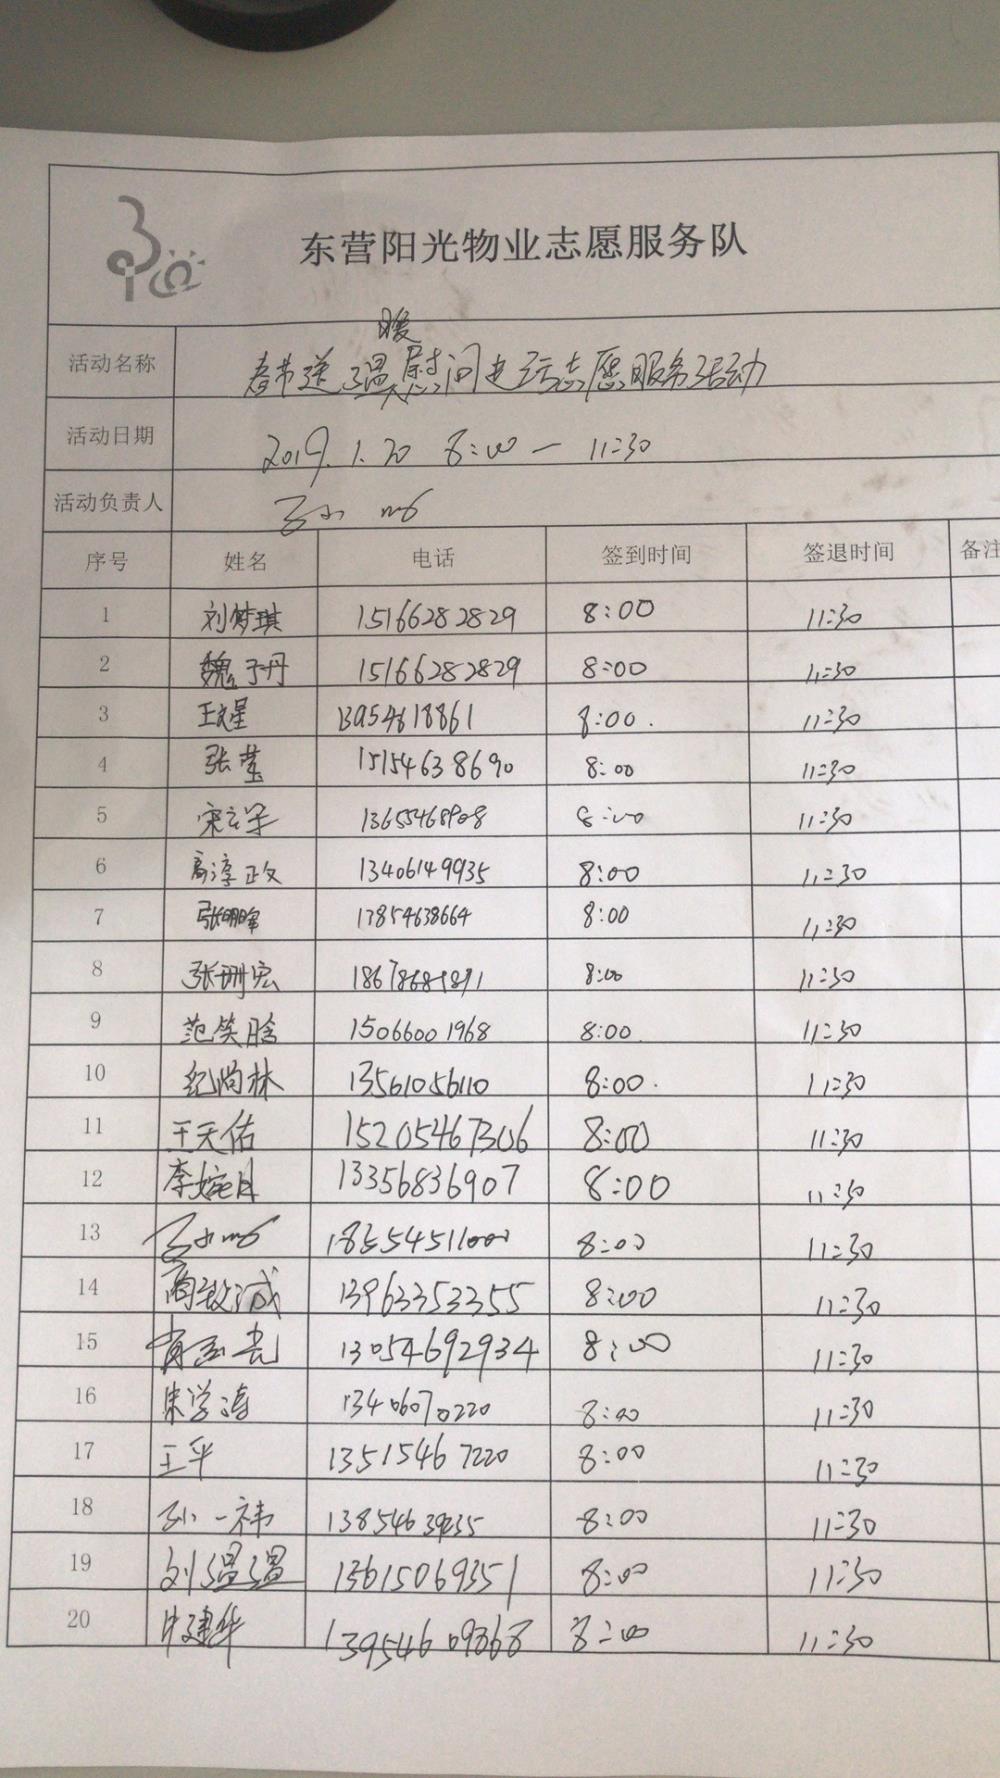 东营阳光物业志愿服务队
活动名称 春节送温暖慰问 志愿服务活动
活动日期 2019.1.20 8:00 — 11:30
活动负责人
序号 姓名 电话 签到时间 签退时间 备注
1 刘梦琪 15166282829 8:00 11:30
2 魏子丹 15166282829 8:00 11:30
3 王文星 13954618861 8:00. 11:30
4 张莹 15154638690 8:00 11:30
5 13655468908 8:00 11:30
6 高淳政 13406149935 8:00 11:30
7 张明晖 13854638664 8:00 11:30
8 张珊宏 8:00 11:30
9 范笑晗 15066001968 8:00 11:30
10 纪尚林 13561056110 8:00. 11:30
11 王天佑 15205467306 8:00 11:30
12 李婉月 13356836907 8:00 11:30
13 18554511000 8:00 11:30
14 商敬诚 13963353355 8:00 11:30
15 13054692934 8:00 11:30
16 朱学涛 13406070220 8:00 11:30
17 王平 13515467220 8:00 11:30
18 孙一祎 8:00 11:30
19 刘温温 13615069351 8:00 11:30
20 建华 13954609868 8:00 11:30